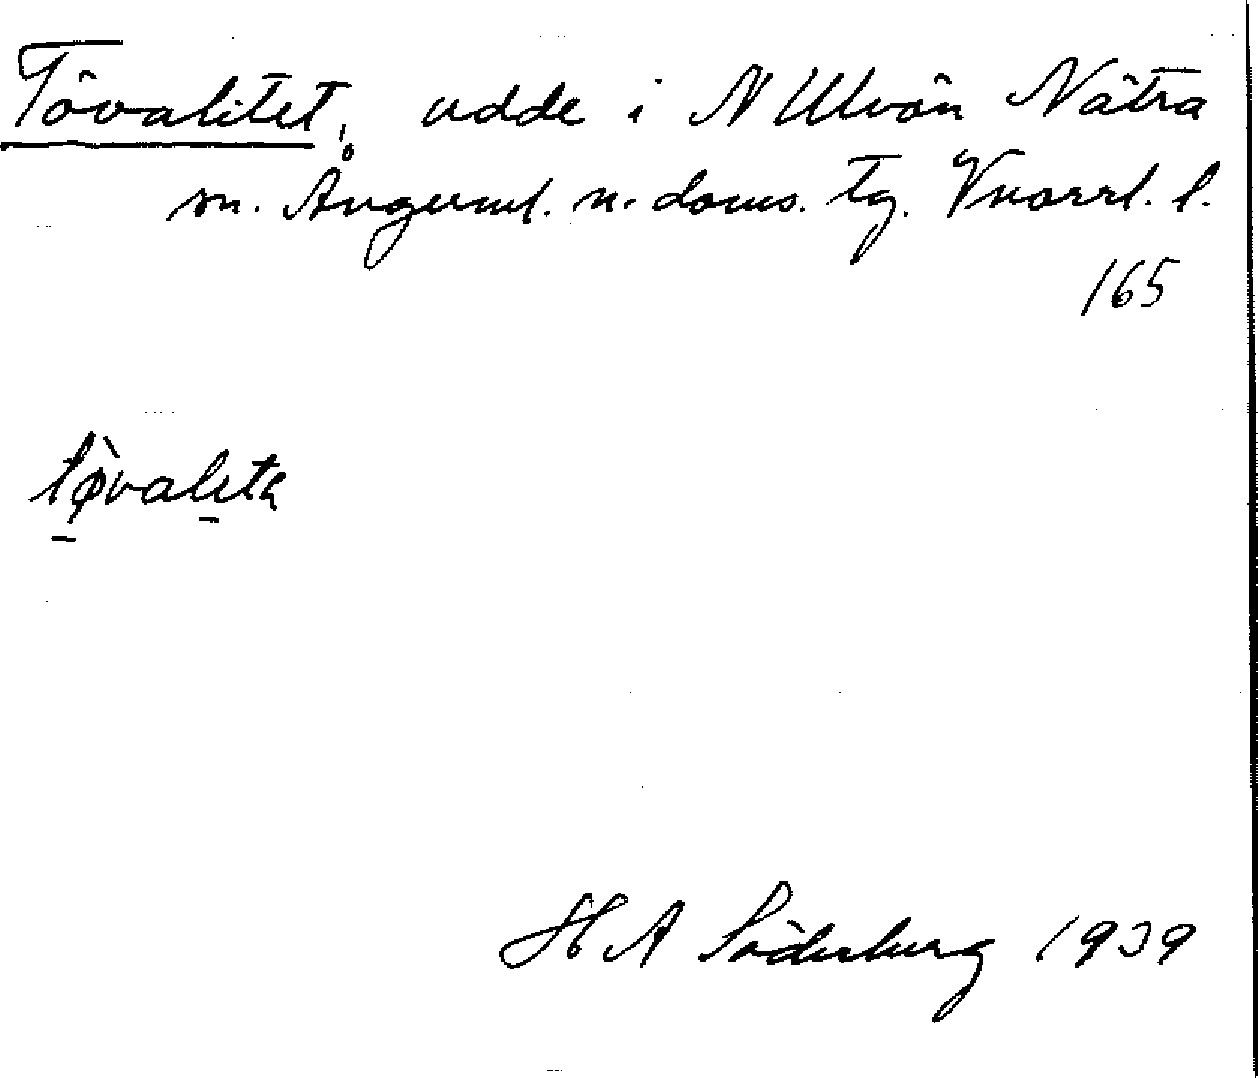 Tövalitet, udde i N Ulvön Nätra
sn. Ångerml. n. doms. tg. Vnorrl. l.
165
tø̀valıta
H A Söderberg 1939